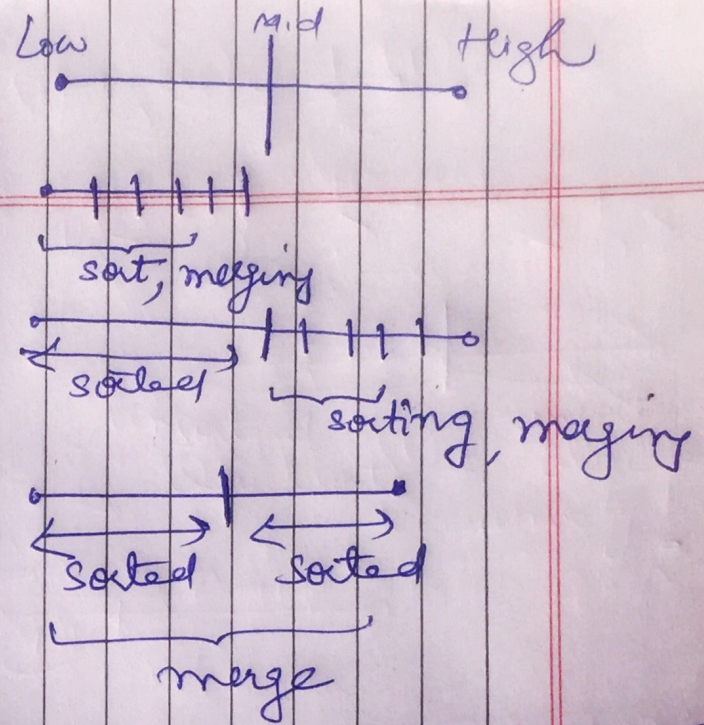 Low Mid High
sort, merging
sorted
sorting, merging
sorted sorted
merge